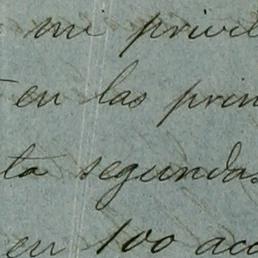 mi privile
en las prin
ta segunda
en 100 acc